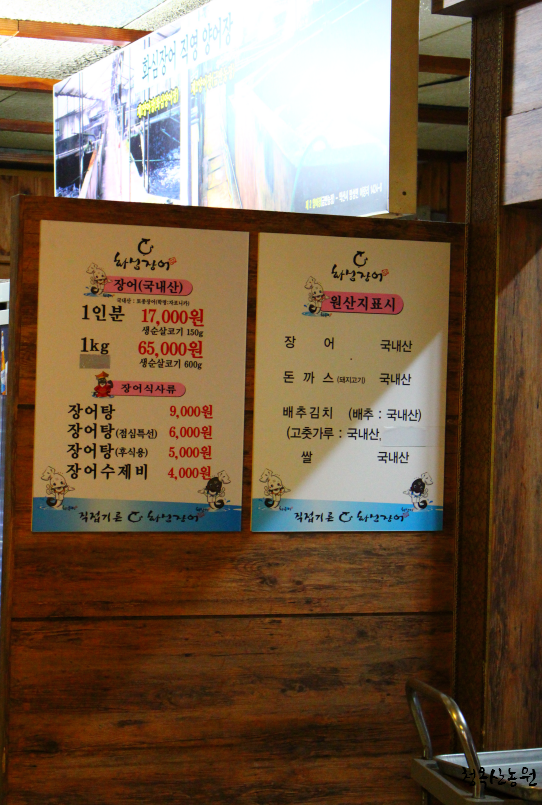 화심장어 직영 양어장
화심장어
장어(국내산)
1인분 17,000원
생순살코기 150g
1kg 65,000원
생순살코기 600g
장어식사류
장어탕 9,000원
장어탕(점심특선) 6,000원
장어탕(후식용) 5,000원
장어수제비 4,000원
직접기른 화심장어
화심장어
원산지표시
장 어 국내산
돈 까 스 (돼지고기) 국내산
배추김치 (배추 : 국내산)
(고춧가루 : 국내산,
쌀 국내산
직접기른 화심장어